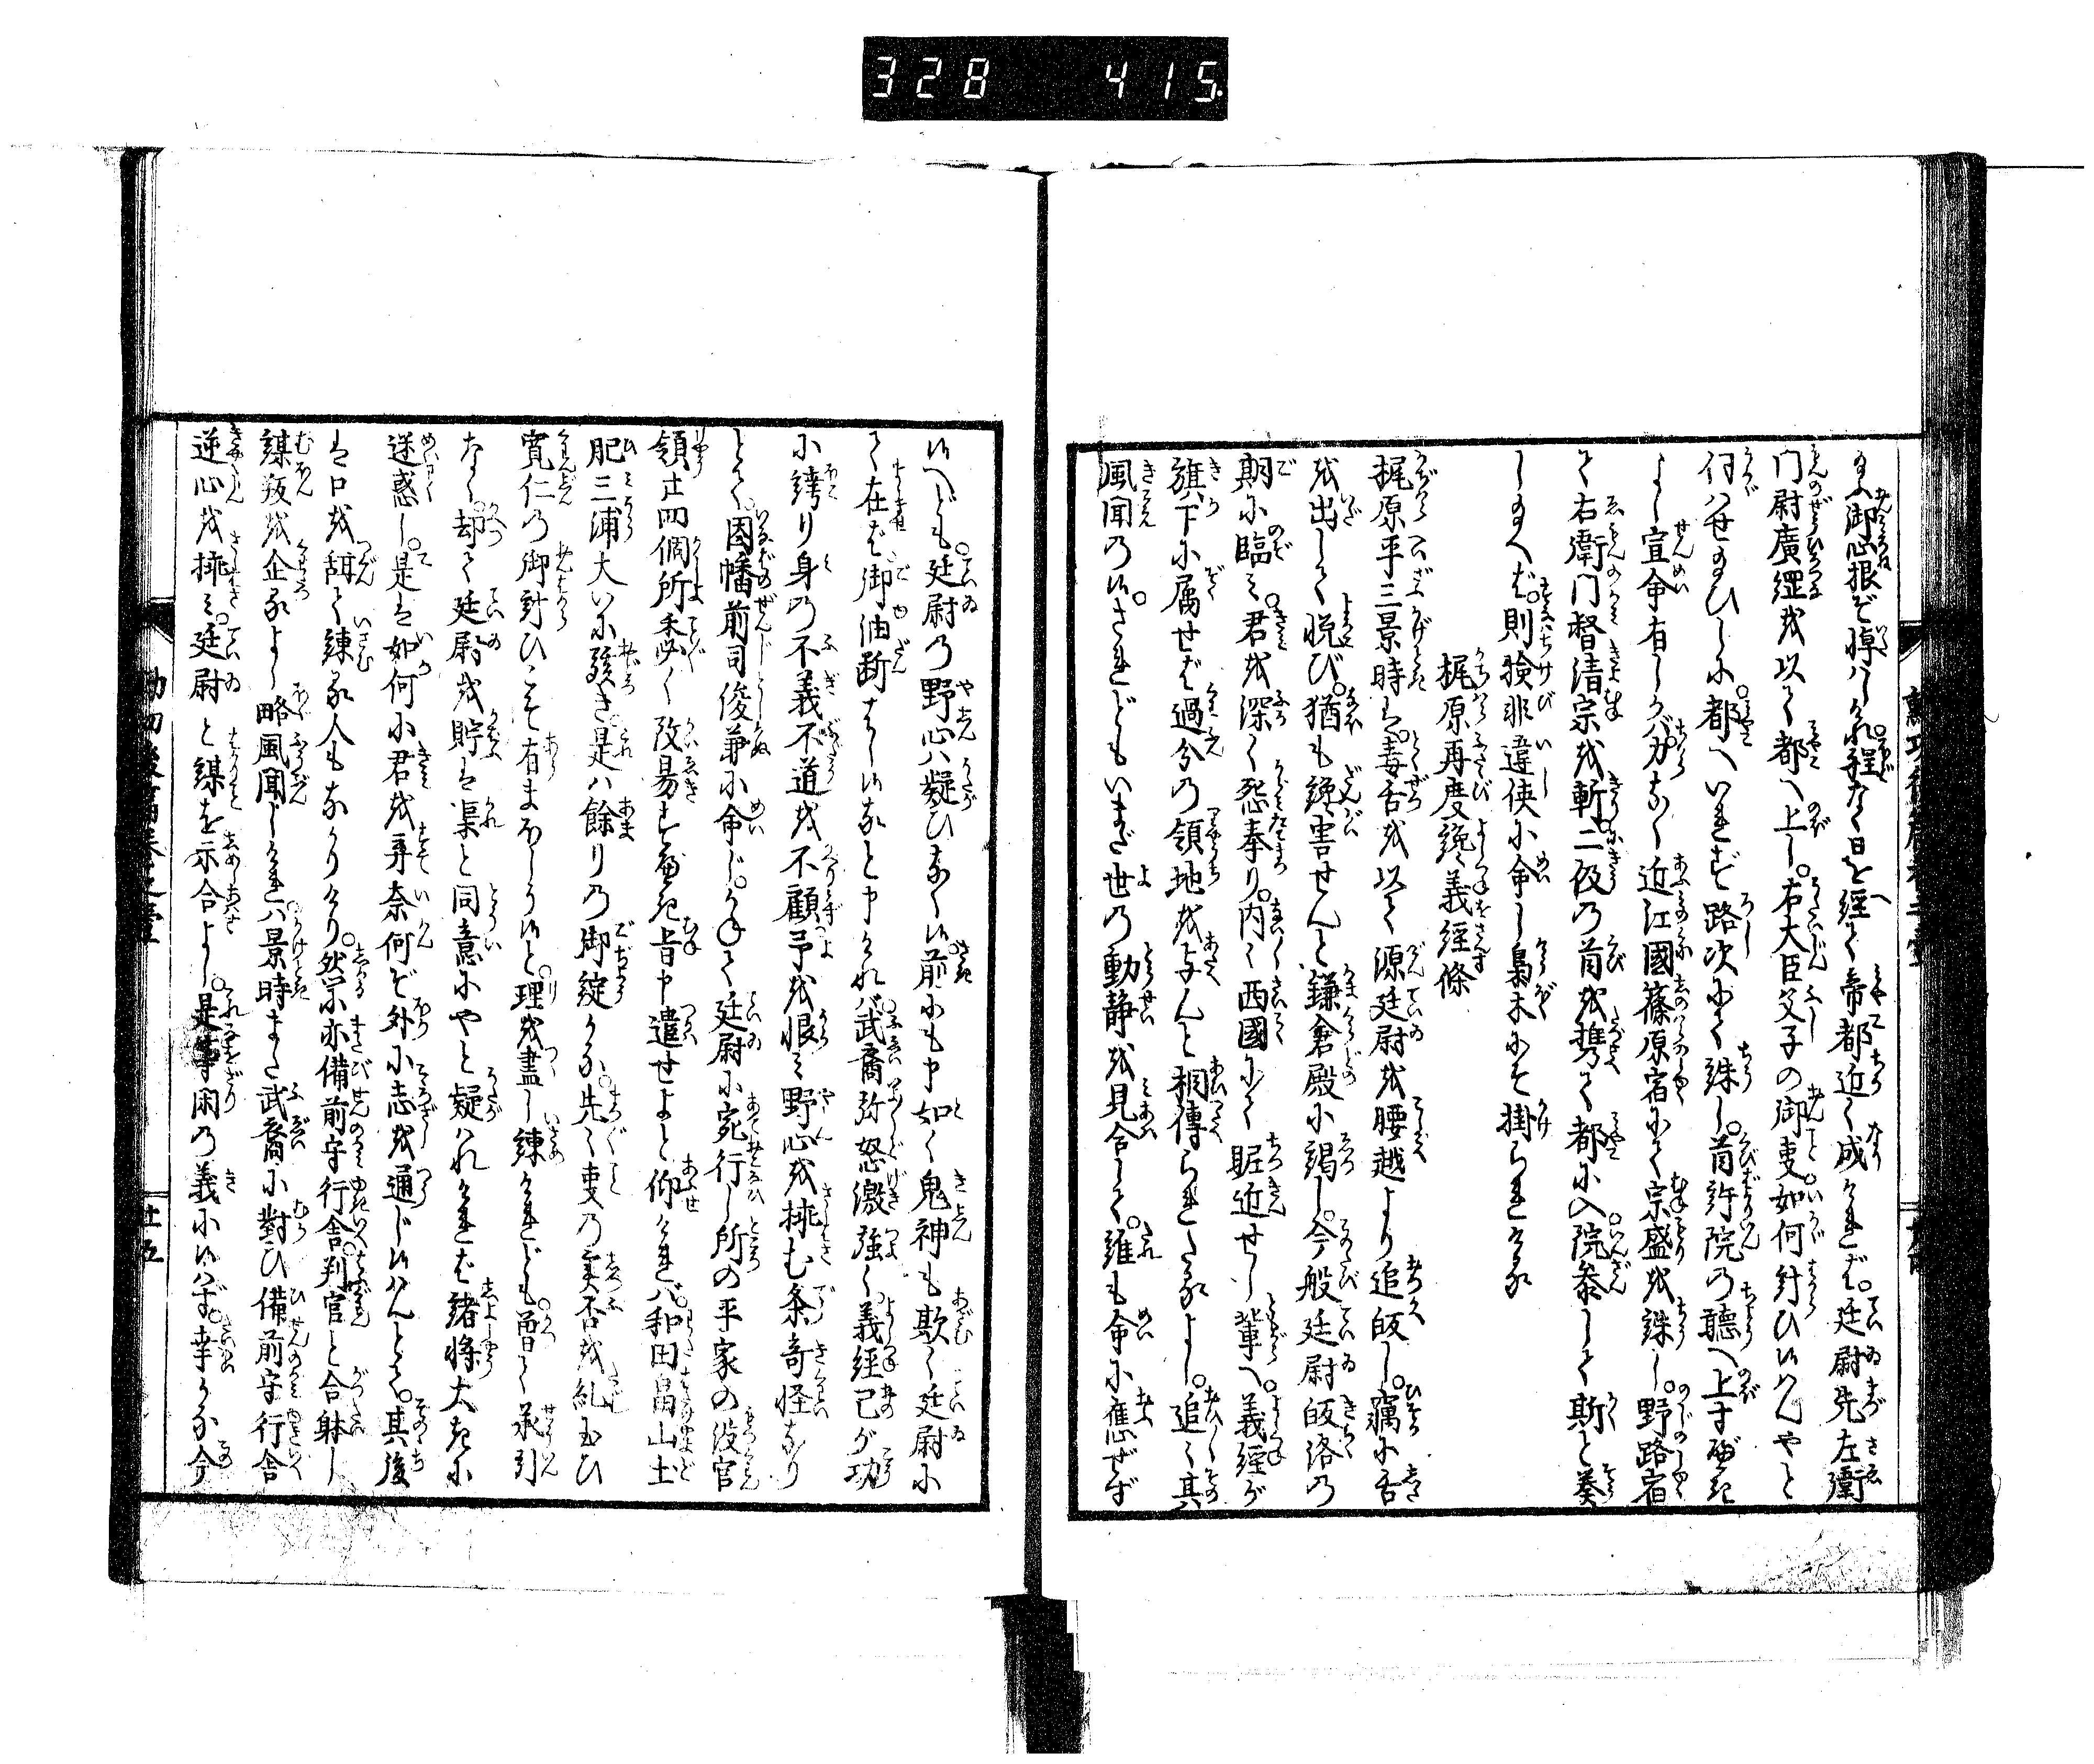 328 415.
玉ふ御心根ぞ悼ハしけれ。程なく日を經て帝都近く成けれバ。廷尉先左衛
门尉廣綱を以て都へ上し。右大臣父子の御叓如何計ひ候ハんやと
伺ハせ玉ひしに。都へいれず路次にて誅し。首許院の聴へ上すべき
よし宣命有しかバ。力なく近江國篠原宿にて宗盛を誅し。野路宿
にて右衛门督清宗を斬。二級の首を携て都に入。院参して斯と奏
し玉へバ。則撿非違使に命し梟木にぞ掛られける
梶原再度讒義経條
梶原平三景時は。毒舌を以て源廷尉を腰越より追皈し。竊に舌
を出して悦び。猶も讒害せんと鎌倉殿に謁し。今般廷尉皈洛の
期に臨み。君を深く怨奉り。内〻西國にて眤近せし輩へ。義經が
旗下に属せバ過分の領地を与んと相傳られたるよし。追〻其
風聞の候。されどもいまだ世の動静を見合して。誰も命に應ぜず
候へども。廷尉の野心ハ疑ひなく候。前にも申如く鬼神も欺く廷尉に
て在バ御油断なく候なと申けれバ。武裔弥怒激強く。義經己が功
に誇り身の不義不道を不顧予を恨み野心を挟む条奇怪なり
とて。因幡前司俊兼に命じ。かねて廷尉に宛行し所の平家の没官
領廿四個所悉く改易すべき旨申遣せよと仰けれバ。和田畠山土
肥三浦大いに駭き。是ハ餘りの御綻かな。先〻叓の実否を糺玉ひ
寛仁の御計ひこそ有まほしう候と。理を盡し練けれども。曽て承引
なく。却て廷尉を貯は渠と同意にやと疑ハれけれバ諸將大きに
迷惑し。是は如何に君を弄奈何ぞ外に志を通じ候ハんとて。其後
は口を緘て練る人もなかりけり。然に亦備前守行舎判官と合躰し
謀叛を企るよし略風聞しけれハ。景時また武裔に對ひ備前守行舎
逆心を挟み。廷尉と謀を示合よし。是等閑の義に候ハず。幸かな今
廿五